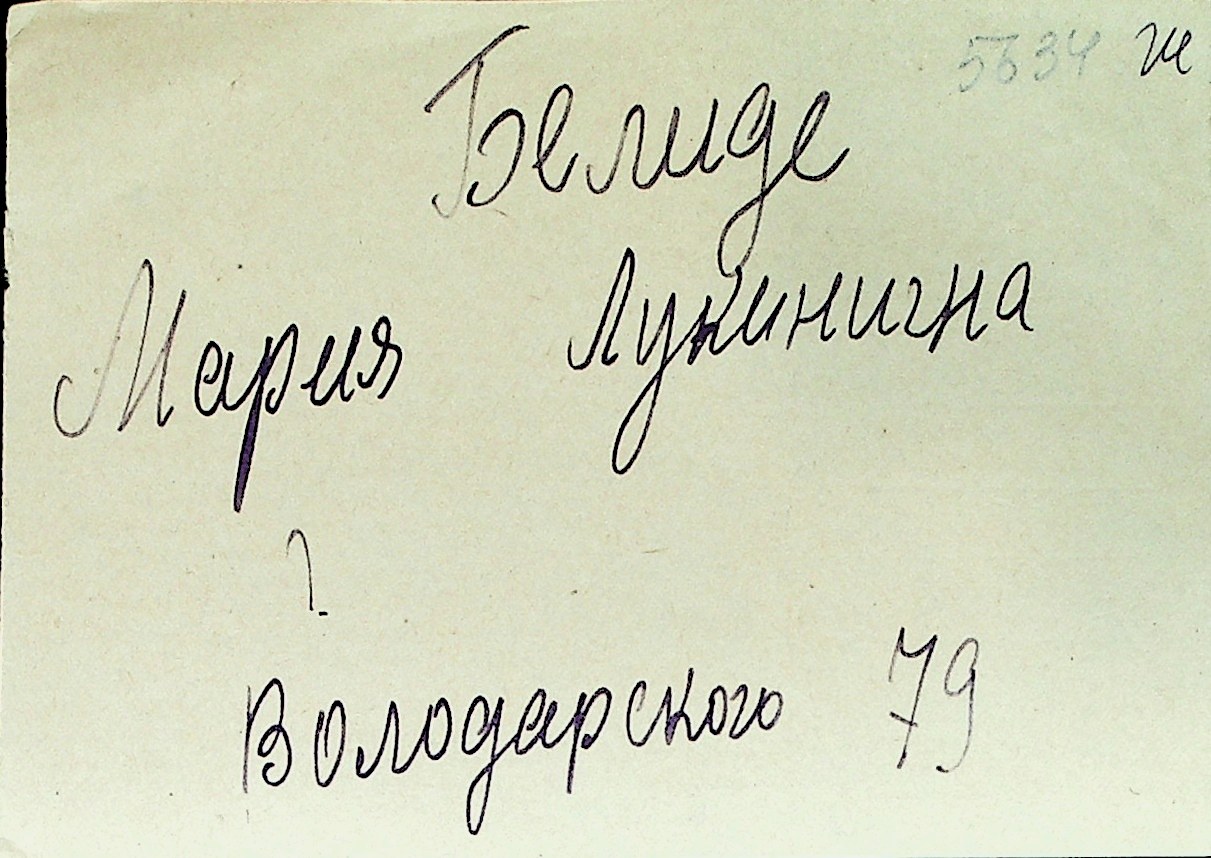 5634 ж
Белиде
Мария Лукинигна
?
Володарского 79